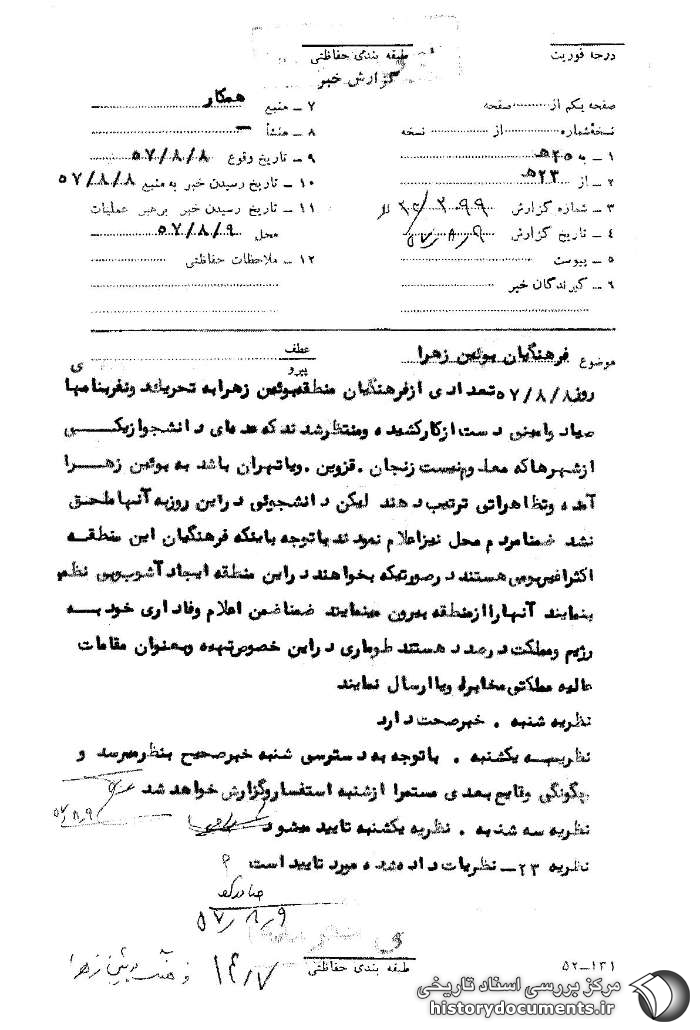 درجه فوریت
طبقه بندی حفاظتی
گزارش خبر
صفحه یکم از صفحه
نسخه شماره از نسخه
۱ – به ۲۵ هـ
۲ – از ۲۳ هـ
۳ – شماره گزارش
۴ – تاریخ گزارش ۵۷/۸/۹
۵ – پیوست
۶ – گیرندگان خبر
۷ – منبع همکار
۸ – منشأ –
۹ – تاریخ وقوع ۵۷/۸/۸
۱۰ – تاریخ رسیدن خبر به منبع ۵۷/۸/۸
۱۱ – تاریخ رسیدن خبر برهبر عملیات
محل ۵۷/۸/۹
۱۲ – ملاحظات حفاظتی
موضوع فرهنگیان بوئین زهرا
عطف
پیرو
روز ۵۷/۸/۸ تعدادی از فرهنگیان منطقه بوئین زهرا به تحریک
دست از کار کشیده و منتظر شدند که عده ای دانشجو از یکی
از شهرها که معلوم نیست زنجان . قزوین . و یا تهران باشد به بوئین زهرا
آمده و تظاهراتی ترتیب دهند لیکن دانشجوئی در این روز به آنها ملحق
نشد ضمنا مردم محل نیز اعلام نمودند با توجه باینکه فرهنگیان این منطقه
اکثرا غیربومی هستند در صورتیکه بخواهند در این منطقه ایجاد آشوب و بی نظمی
بنمایند آنها را از منطقه بیرون مینمایند ضمنا ضمن اعلام وفاداری خود به
رژیم و مملکت در صدد هستند طوماری در این خصوص تهیه و بعنوان مقامات
عالیه مملکتی مخابره و یا ارسال نمایند
نظریه شنبه . خبر صحت دارد
نظریه یکشنبه . با توجه به دسترسی شنبه خبر صحیح بنظر میرسد و
چگونگی وقایع بعدی مستمرا از شنبه استفسار و گزارش خواهد شد
۵۷/۸/۹
نظریه سه شنبه . نظریه یکشنبه تایید میشود
نظریه ۲۳ – نظریات داده شده مورد تایید است
۵۷/۸/۹
طبقه بندی حفاظتی
۵۲–۱۳۱
۱۴/۷
فرهنگ بوئین زهرا
مرکز بررسی اسناد تاریخی
historydocuments.ir